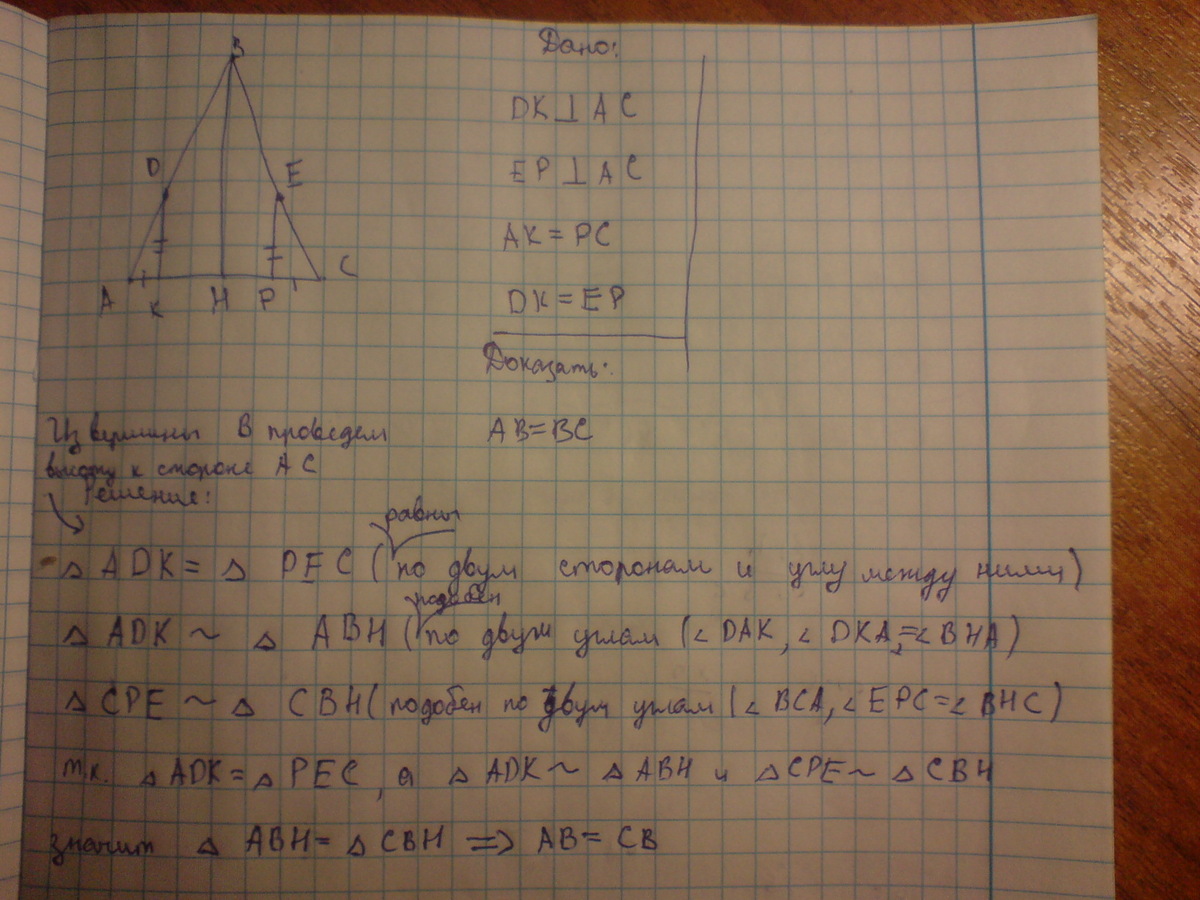 B
D
E
A
K
H
P
C
Дано:
DK⊥AC
EP⊥AC
AK=PC
DK=EP
Доказать:
AB=BC
Из вершины B проведем
высоту к стороне AC
Решение:
равны
△ ADK = △ PEC (по двум сторонам и углу между ними)
подобен
△ ADK ~ △ ABH (по двум углам (∠DAK, ∠DKA=∠BHA)
△ CPE ~ △ CBH (подобен по двум углам (∠BCA, ∠EPC=∠BHC)
т.к. △ ADK = △ PEC, а △ ADK ~ △ ABH и △ CPE ~ △ CBH
значит △ ABH = △ CBH => AB = CB